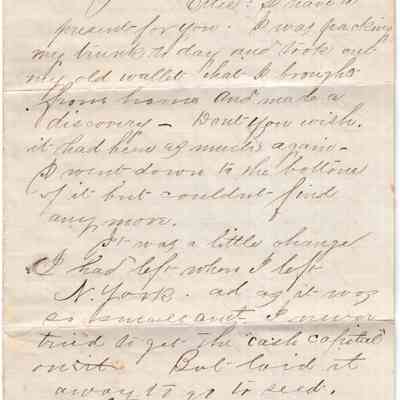 Ollie! I have a
present for you. I was packing
my trunk to day and took out
my old wallet that I brought
from home and made a
discovery — Dont you wish
it had been as much again —
I went down to the bottom
of it but couldnt find
any more.
It was a little change
I had left when I left
N. York. and as it was
so small amt. I never
tried to get the "cash capital"
on it. But laid it
away to go to seed.